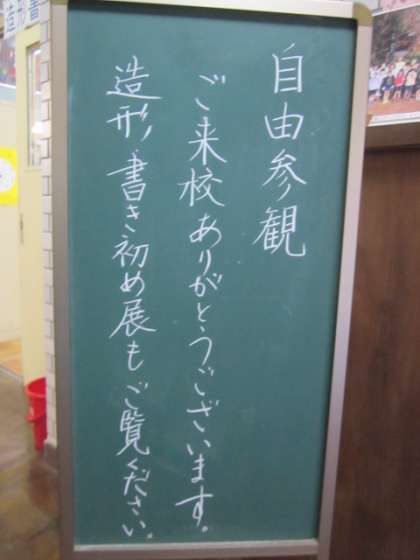 自由参観
ご来校ありがとうございます。
造形、書き初め展もご覧ください。
造形